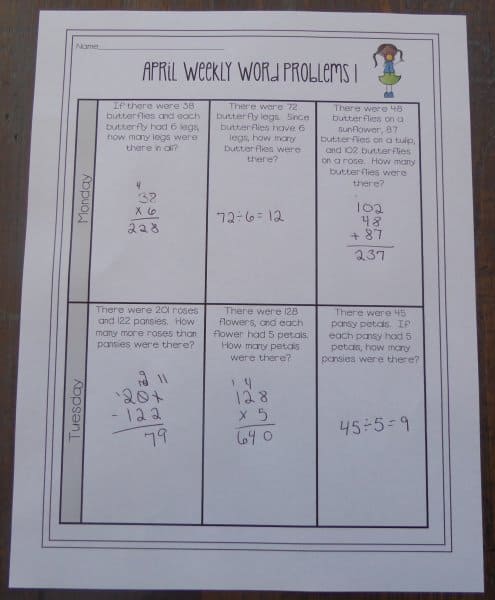 Name
April Weekly Word Problems 1
Monday
If there were 38
butterflies and each
butterfly had 6 legs,
how many legs were
there in all?
4
38
x 6
228
There were 72
butterfly legs. Since
butterflies have 6
legs, how many
butterflies were
there?
72÷6=12
There were 48
butterflies on a
sunflower, 87
butterflies on a tulip,
and 102 butterflies
on a rose. How many
butterflies were
there?
102
48
+ 87
237
Tuesday
There were 201 roses
and 122 pansies. How
many more roses than
pansies were there?
9 11
201
- 122
79
There were 128
flowers, and each
flower had 5 petals.
How many petals
were there?
1 4
128
x 5
640
There were 45
pansy petals. If
each pansy had 5
petals, how many
pansies were there?
45÷5=9